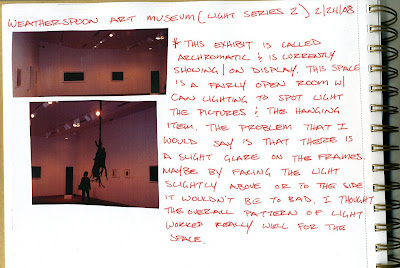 WEATHERSPOON ART MUSEUM (LIGHT SERIES 2) 2/24/08
* THIS EXHIBIT IS CALLED
ARCHROMATIC & IS CURRENTLY
SHOWING/ON DISPLAY. THIS SPACE
IS A FAIRLY OPEN ROOM W/
CAN LIGHTING TO SPOT LIGHT
THE PICTURES & THE HANGING
ITEM. THE PROBLEM THAT I
WOULD SAY IS THAT THERE IS
A SLIGHT GLARE ON THE FRAMES.
MAYBE BY FACING THE LIGHT
SLIGHTLY ABOVE OR TO THE SIDE
IT WOULDN'T BE TO BAD. I THOUGHT
THE OVERALL PATTERN OF LIGHT
WORKED REALLY WELL FOR THE
SPACE.